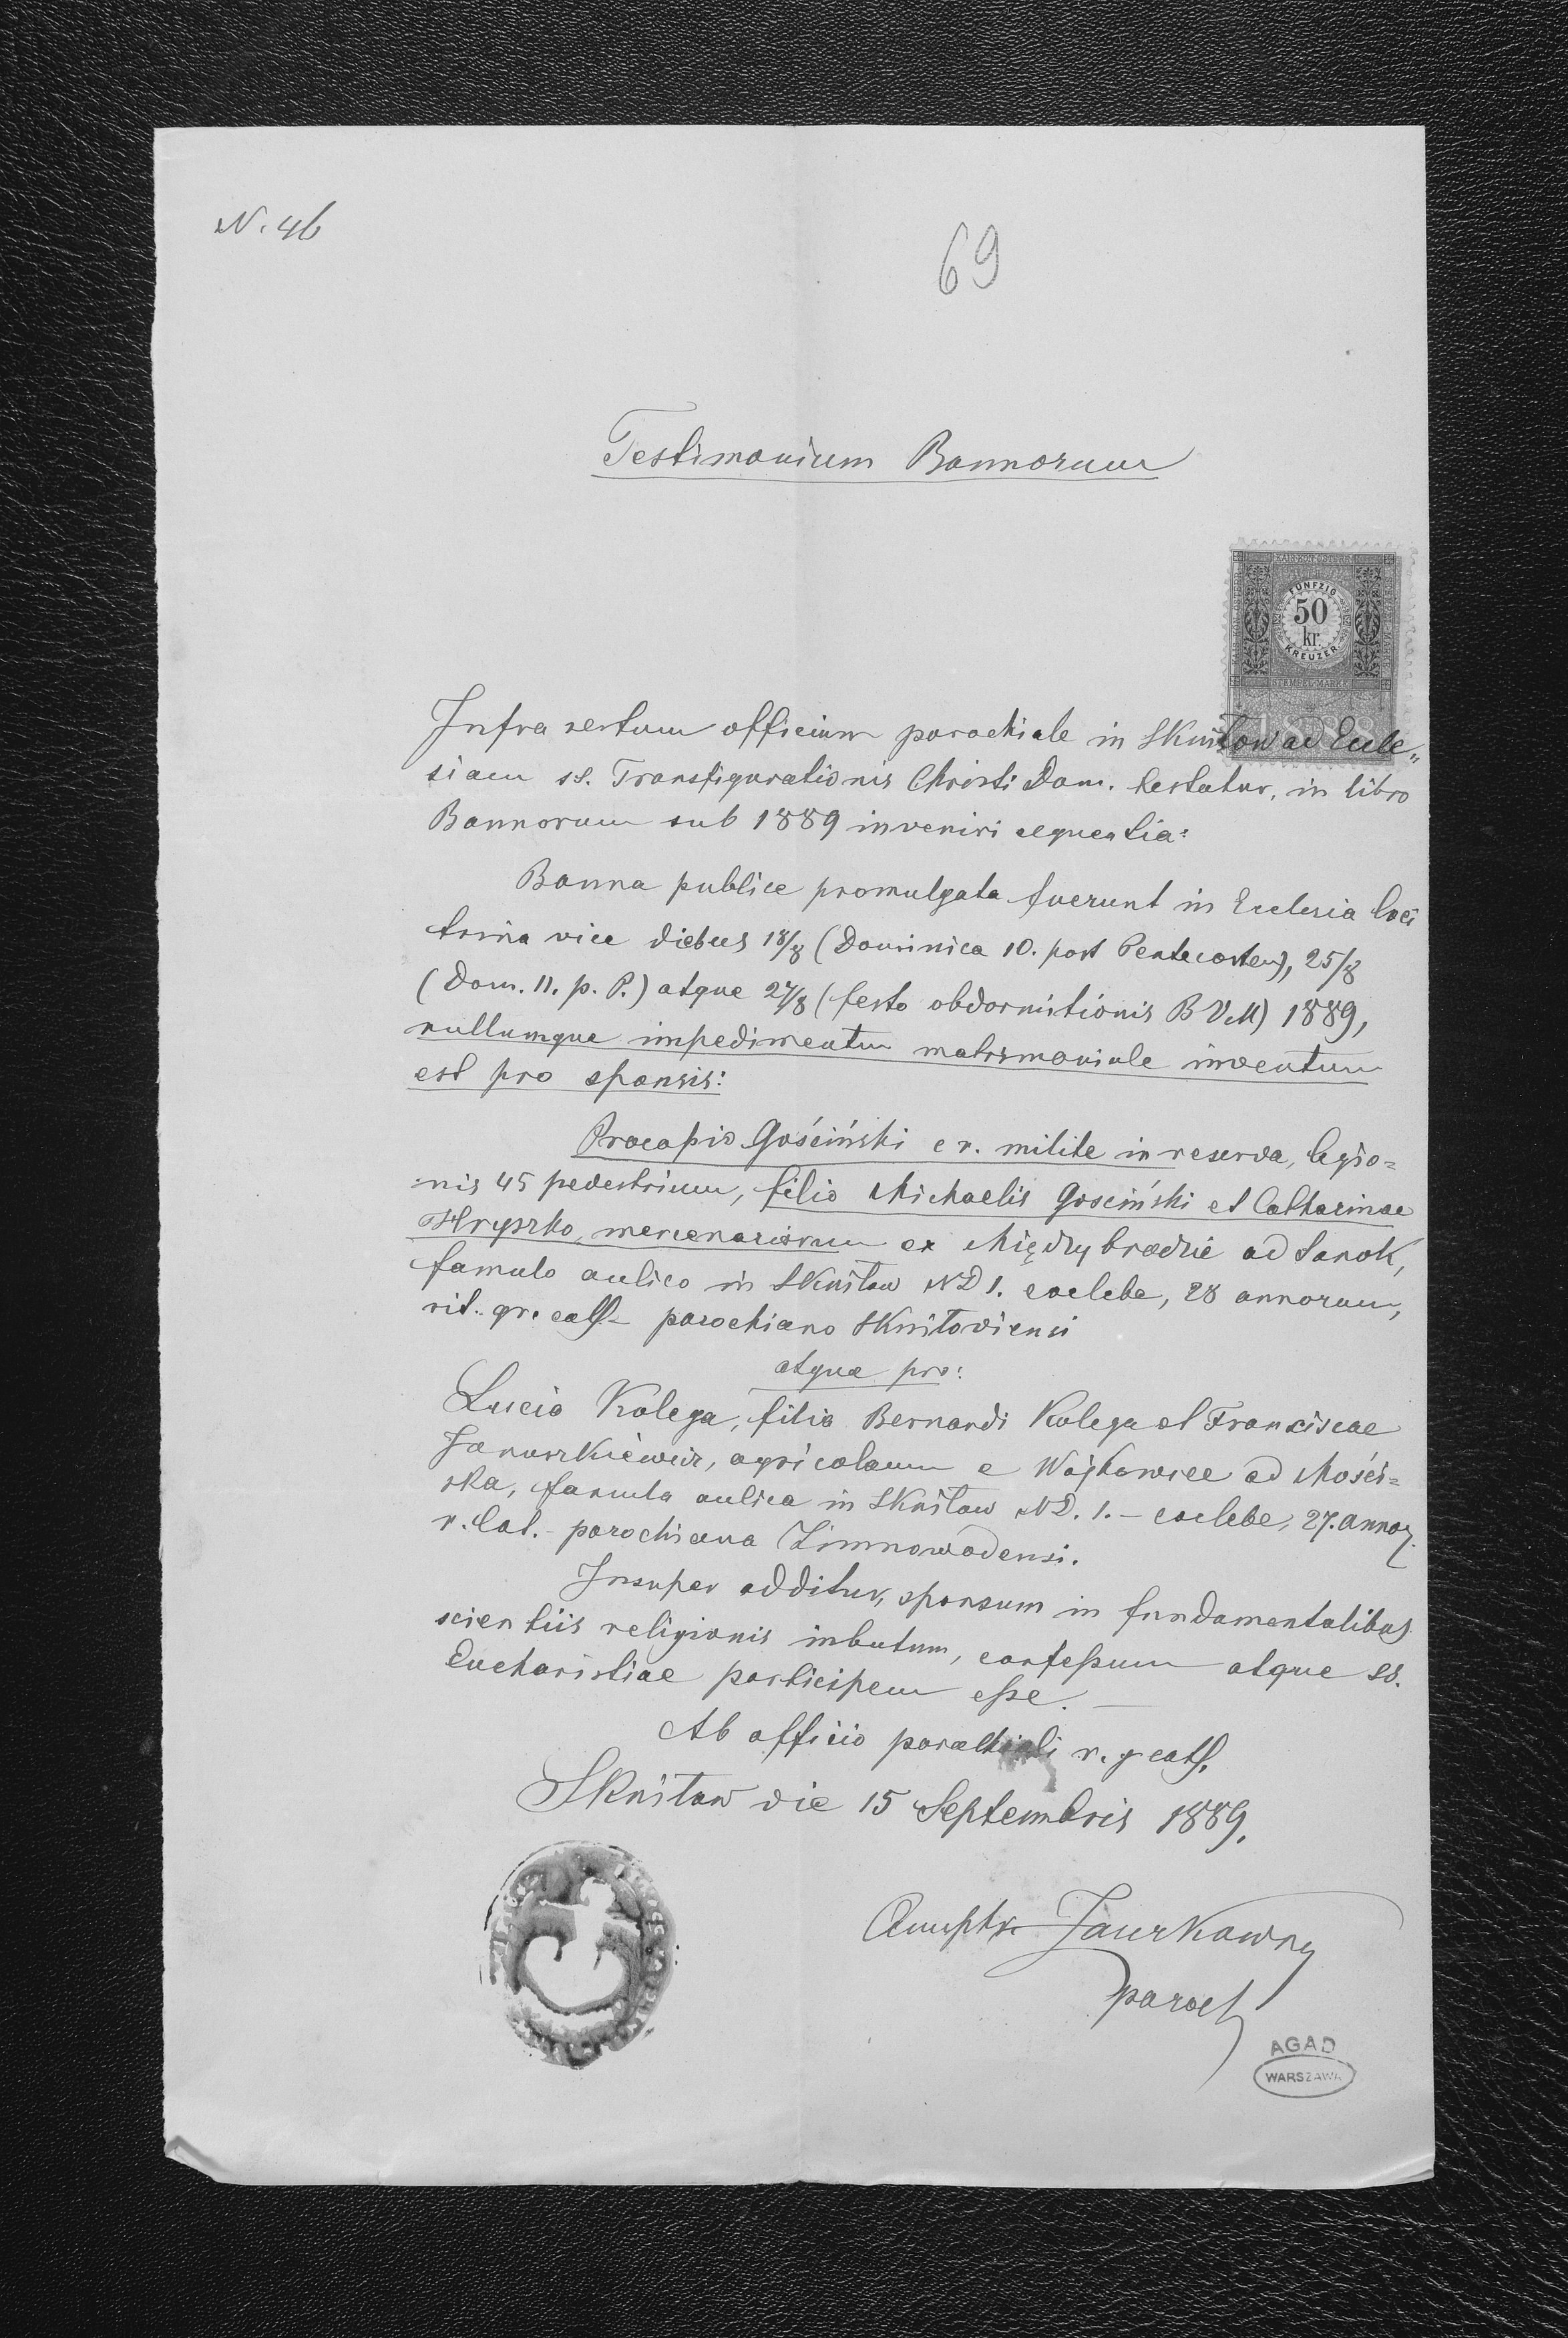 N. 46
69
Testimonium Bannorum
FÜNFZIG
50
kr.
KREUZER
STEMPEL-MARKE
1888
Infra sertum officium parochiale in Skniłow ad Eccle„
siam ss. Transfigurationis Christi Dom. testatur, in libro
Bannorum sub 1889 inveniri sequentia:
Banna publice promulgata fuerunt in Ecclesia loci
trina vice diebus 18/8 (Dominica 10. post Pentecosten), 25/8
(Dom. 11. p. P.) atque 27/8 (festo obdormitionis B V M) 1889,
nullumque impedimentum matrimoniale inventum
est pro sponsis:
Procopio Gościński c r. milite in reserva, legio=
nis 45 pedestrium, filio Michaelis Gosciński et Catharinae
Hryszko, mercenariorum ex Międzybrodzie ad Sanok,
famulo aulico in Skniłow ND 1. coelebe, 28 annorum,
rit. gr. cath. parochiano Skniłoviensi
atque pro:
Lucia Kolega, filia Bernardi Kolega et Franciscae
Januszkiewicz, agricolarum e Wojkowice ad Mości=
ska, famula aulica in Skniłow ND. 1. – coelebe, 27. annor.
r. lat. – parochiana Zimnowodensi.
Insuper additur, sponsum in fundamentalibus
scientiis religionis inbutum, confessum atque ss.
Eucharistiae participem esse. –
Ab officio parochiali r. g cath.
Skniłow die 15 Septembris 1889.
paroch
AGAD
WARSZAWA